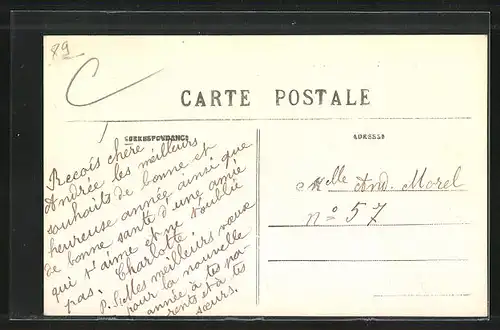 89
CARTE POSTALE
CORRESPONDANCE
ADRESSE
Recois chère
Andrée les meilleurs
souhaits de bonne et
heureuse année ainsi que
de bonne santé d'une amie
qui t'aime et ne t'oublie
pas. Charlotte.
P.S. Mes meilleurs vœux
pour la nouvelle
année à tes pa-
rents et à tes
sœurs.
Melle And. Morel
no 57